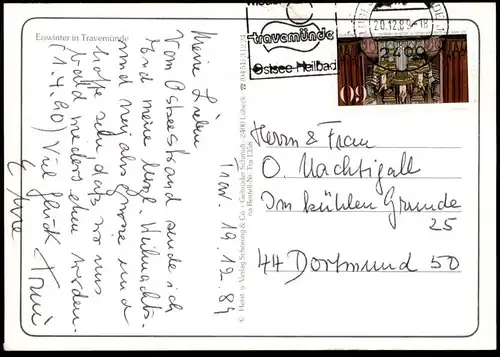 Eiswinter in Travemünde
Trav. 19.12.89
Meine Lieben
Vom Ostseestrand sende ich
Euch meine herzl. Weihnachts-
und Neujahrsgrüsse und
hoffe sehr daß wir uns
bald wieder sehen werden.
(1.4.90) Viel Glück
Eure
© Herst. u. Verlag Schöning & Co + Gebrüder Schmidt · 2400 Lübeck ☎ (0451) 31 2 24
travemünde
Ostsee-Heilbad
20.12.89-18
60
Herrn & Frau
O. Nachtigall
Im kühlen Grunde
25
44 Dortmund 50